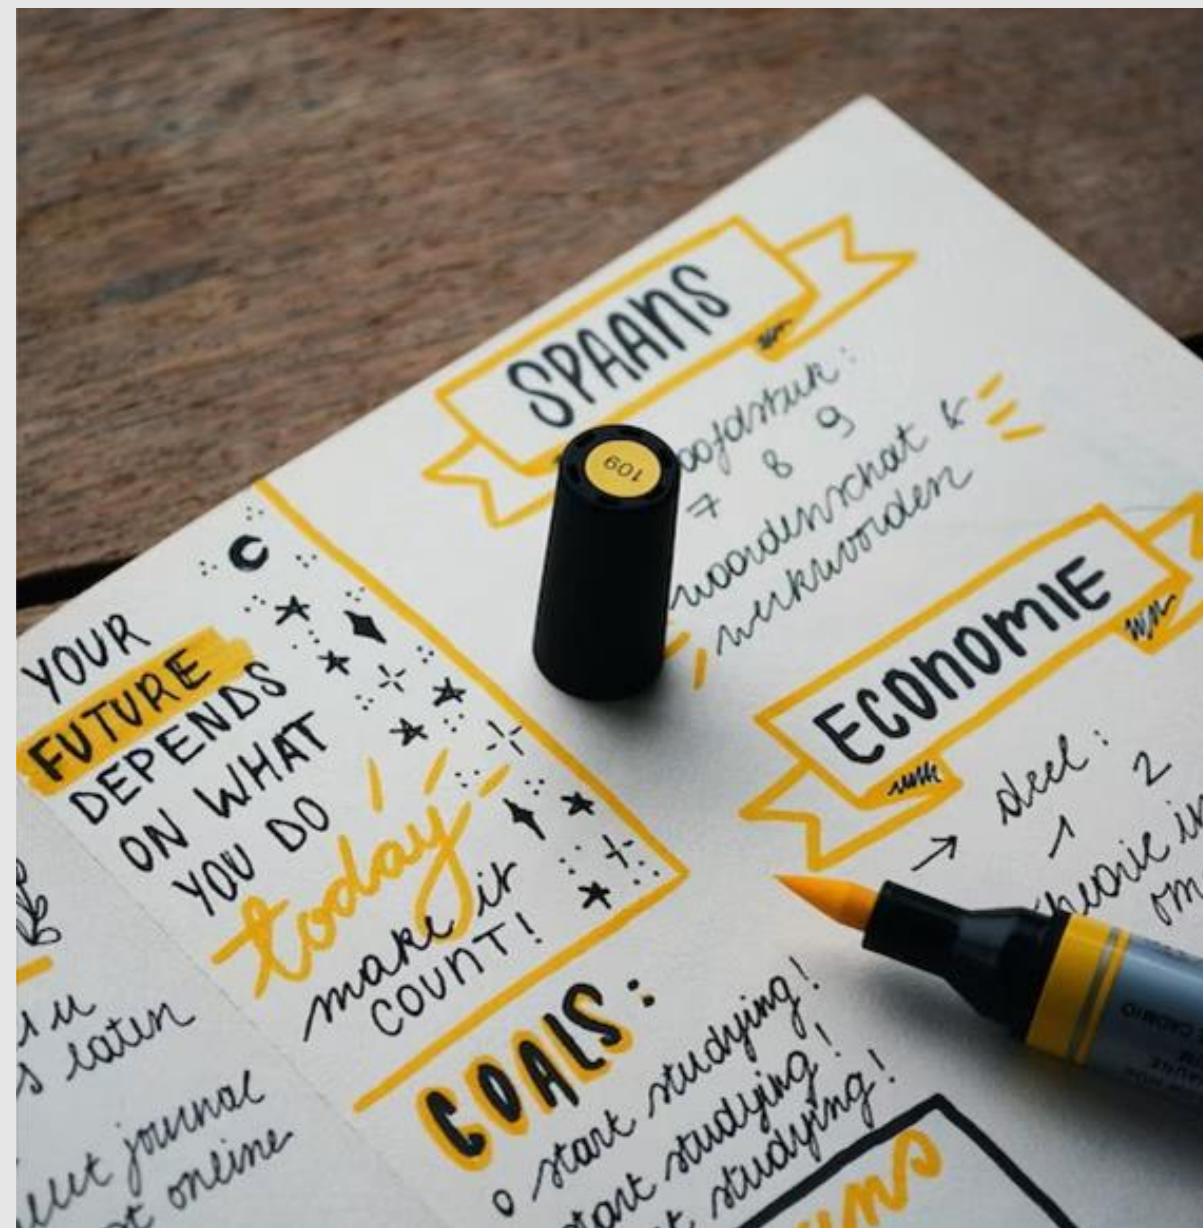 SPAANS
7 8 9
woordenschat &
werkwoorden
109
ECONOMIE
→ deel :
1 2
YOUR
FUTURE
DEPENDS
ON WHAT
YOU DO
today
make it
COUNT!
GOALS:
o start studying!
start studying!
studying!
laten
journal
online